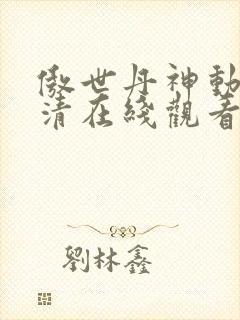 傲世丹神動
清在綫觀看
劉林鑫